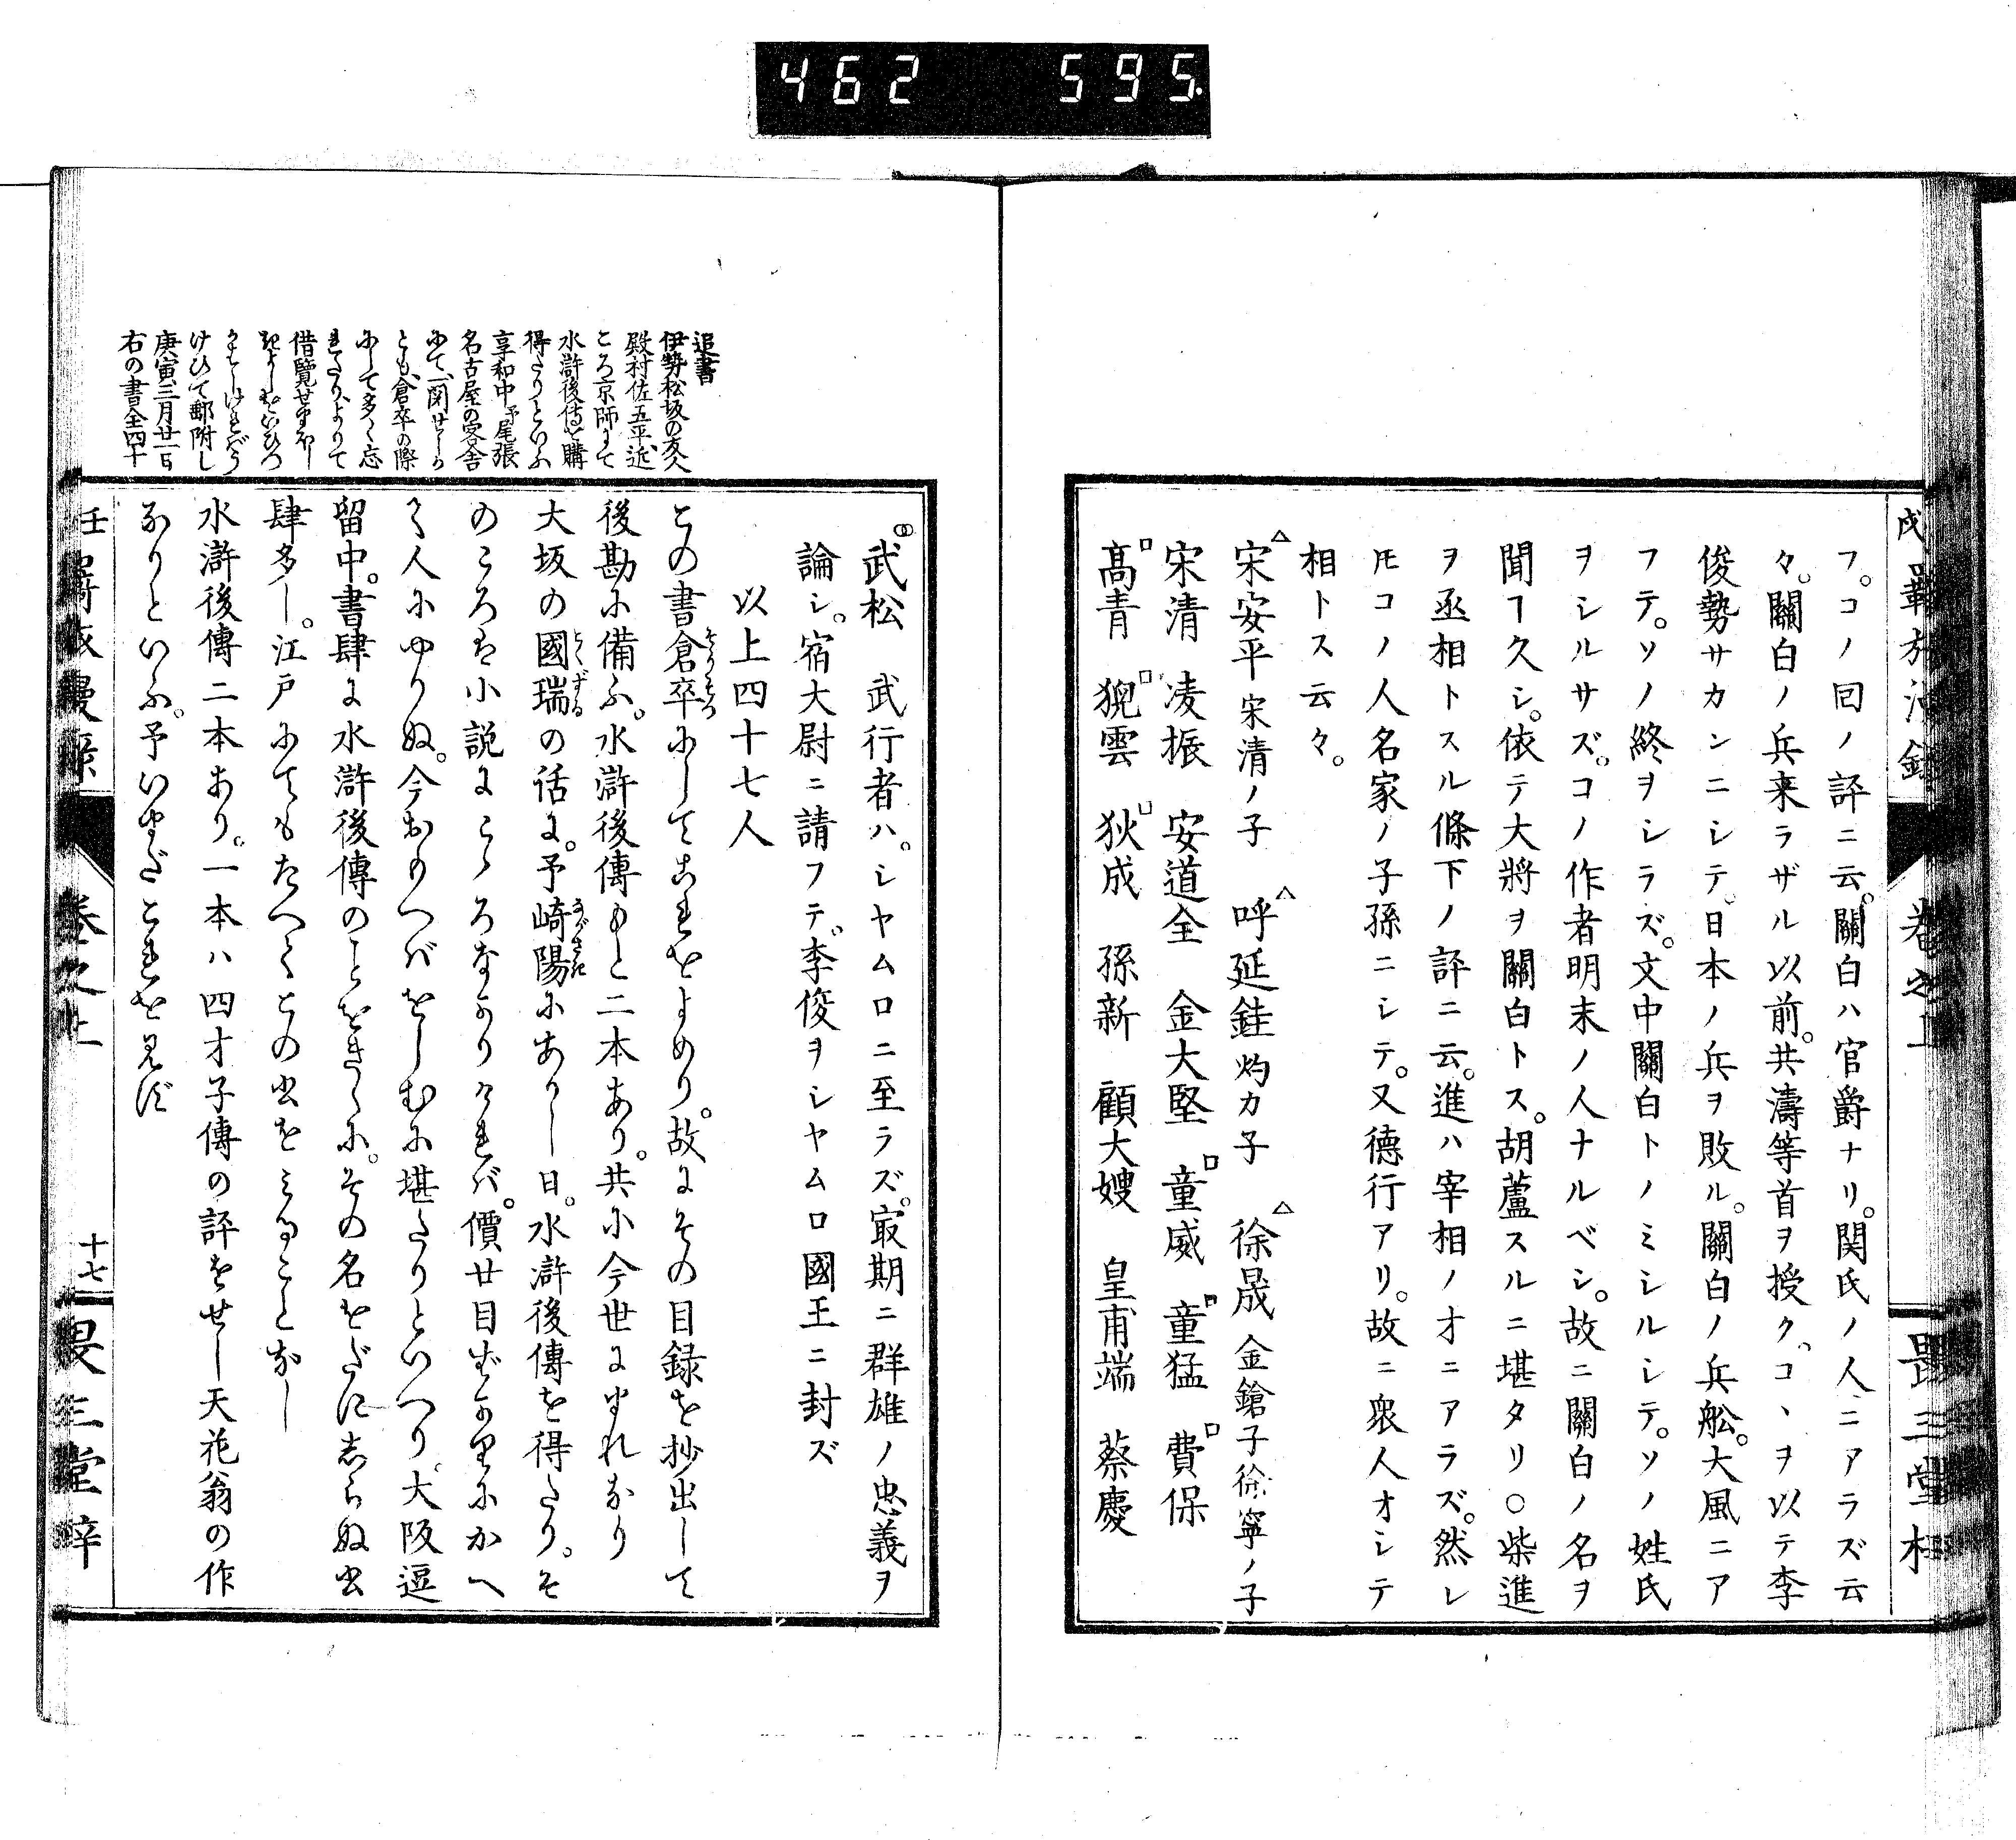 462 595.
フ。コノ回ノ評ニ云。關白ハ官爵ナリ。関氏ノ人ニアラズ云
々。關白ノ兵来ラザル以前。共濤等首ヲ授ク。コヽヲ以テ李
俊勢サカンニシテ。日本ノ兵ヲ敗ル。關白ノ兵舩。大風ニア
フテ。ソノ終ヲシラズ。文中關白トノミシルシテ。ソノ姓氏
ヲシルサズ。コノ作者明末ノ人ナルベシ。故ニ關白ノ名ヲ
聞ヿ久シ。依テ大將ヲ關白トス。胡蘆スルニ堪タリ○柴進
ヲ丞相トスル條下ノ評ニ云。進ハ宰相ノオニアラズ。然レ
𪜈コノ人名家ノ子孫ニシテ。又德行アリ。故ニ衆人オシテ
相トス云々。
△宋安平 宋清ノ子 △呼延鈺 灼カ子 △徐晟 金鎗子徐寧ノ子
宋清 凌振 安道全 金大堅 □童威 □童猛 □費保
□高青 □猊雲 □狄成 孫新 顧大嫂 皇甫端 蔡慶
武松 武行者ハ。シヤムロニ至ラズ。冣期ニ群雄ノ忠義ヲ
論シ。宿大尉ニ請フテ。李俊ヲシヤムロ國王ニ封ズ
以上四十七人
この書倉卒にしてこれをよめり。故にその目録を抄出して
後勘に備ふ。水滸後傳もと二本あり。共に今世にまれなり
大坂の國瑞の話に。予崎陽にありし日。水滸後傳を得たり。そ
のころは小説にこゝろなかりければ。價廿目ばかりにかへ
て人にゆりぬ。今おもへばをしむに堪たりといへり。大阪逗
留中。書肆に水滸後傳のことをきくに。その名をだにしらぬ書
肆多し。江戸にてもたへてこの書をみることなし
水滸後傳二本あり。一本ハ四才子傳の評をせし天花翁の作
なりといふ。予いまだこれを見ず
追書
伊勢松坂の友人
殿村佐五平、近
ころ京師にて
水滸後傳を購
得たりといふ
享和中予尾張
名古屋の客舎
にて、一閲せしか
とも、倉卒の際
にして多く忘
れたり、よりて
借覽せまほし
きよしをいひつ
かはしければ、う
けひて郵附し
庚寅三月廿一日
右の書全四十
卷之上
十七